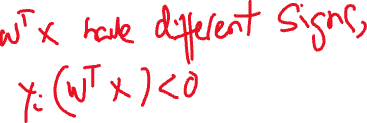 wᵀx have different signs,
yᵢ(wᵀx)<0